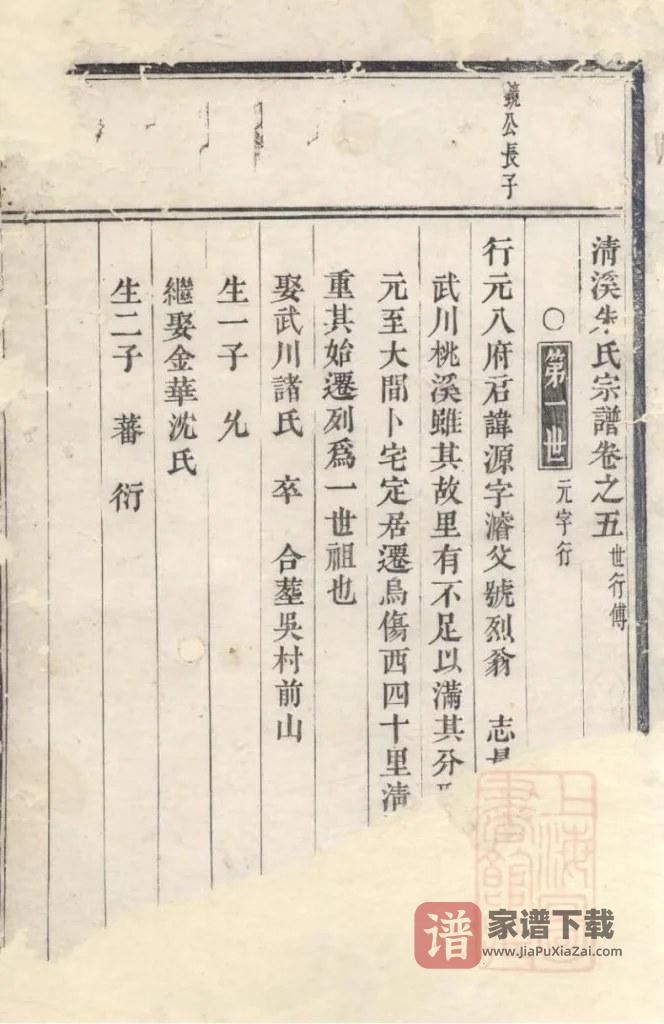 清溪朱氏宗譜卷之五 世行傳
○第一世 元字行
鏡公長子
行元八府君諱源字濬父號烈翁 志
武川桃溪雖其故里有不足以滿其分
元至大間卜宅定居遷烏傷西四十里清
重其始遷列爲一世祖也
娶武川諸氏 卒 合塟吳村前山
生一子 允
繼娶金華沈氏
生二子 蕃 衍
谱 家谱下载
www.JiaPuXiaZai.com